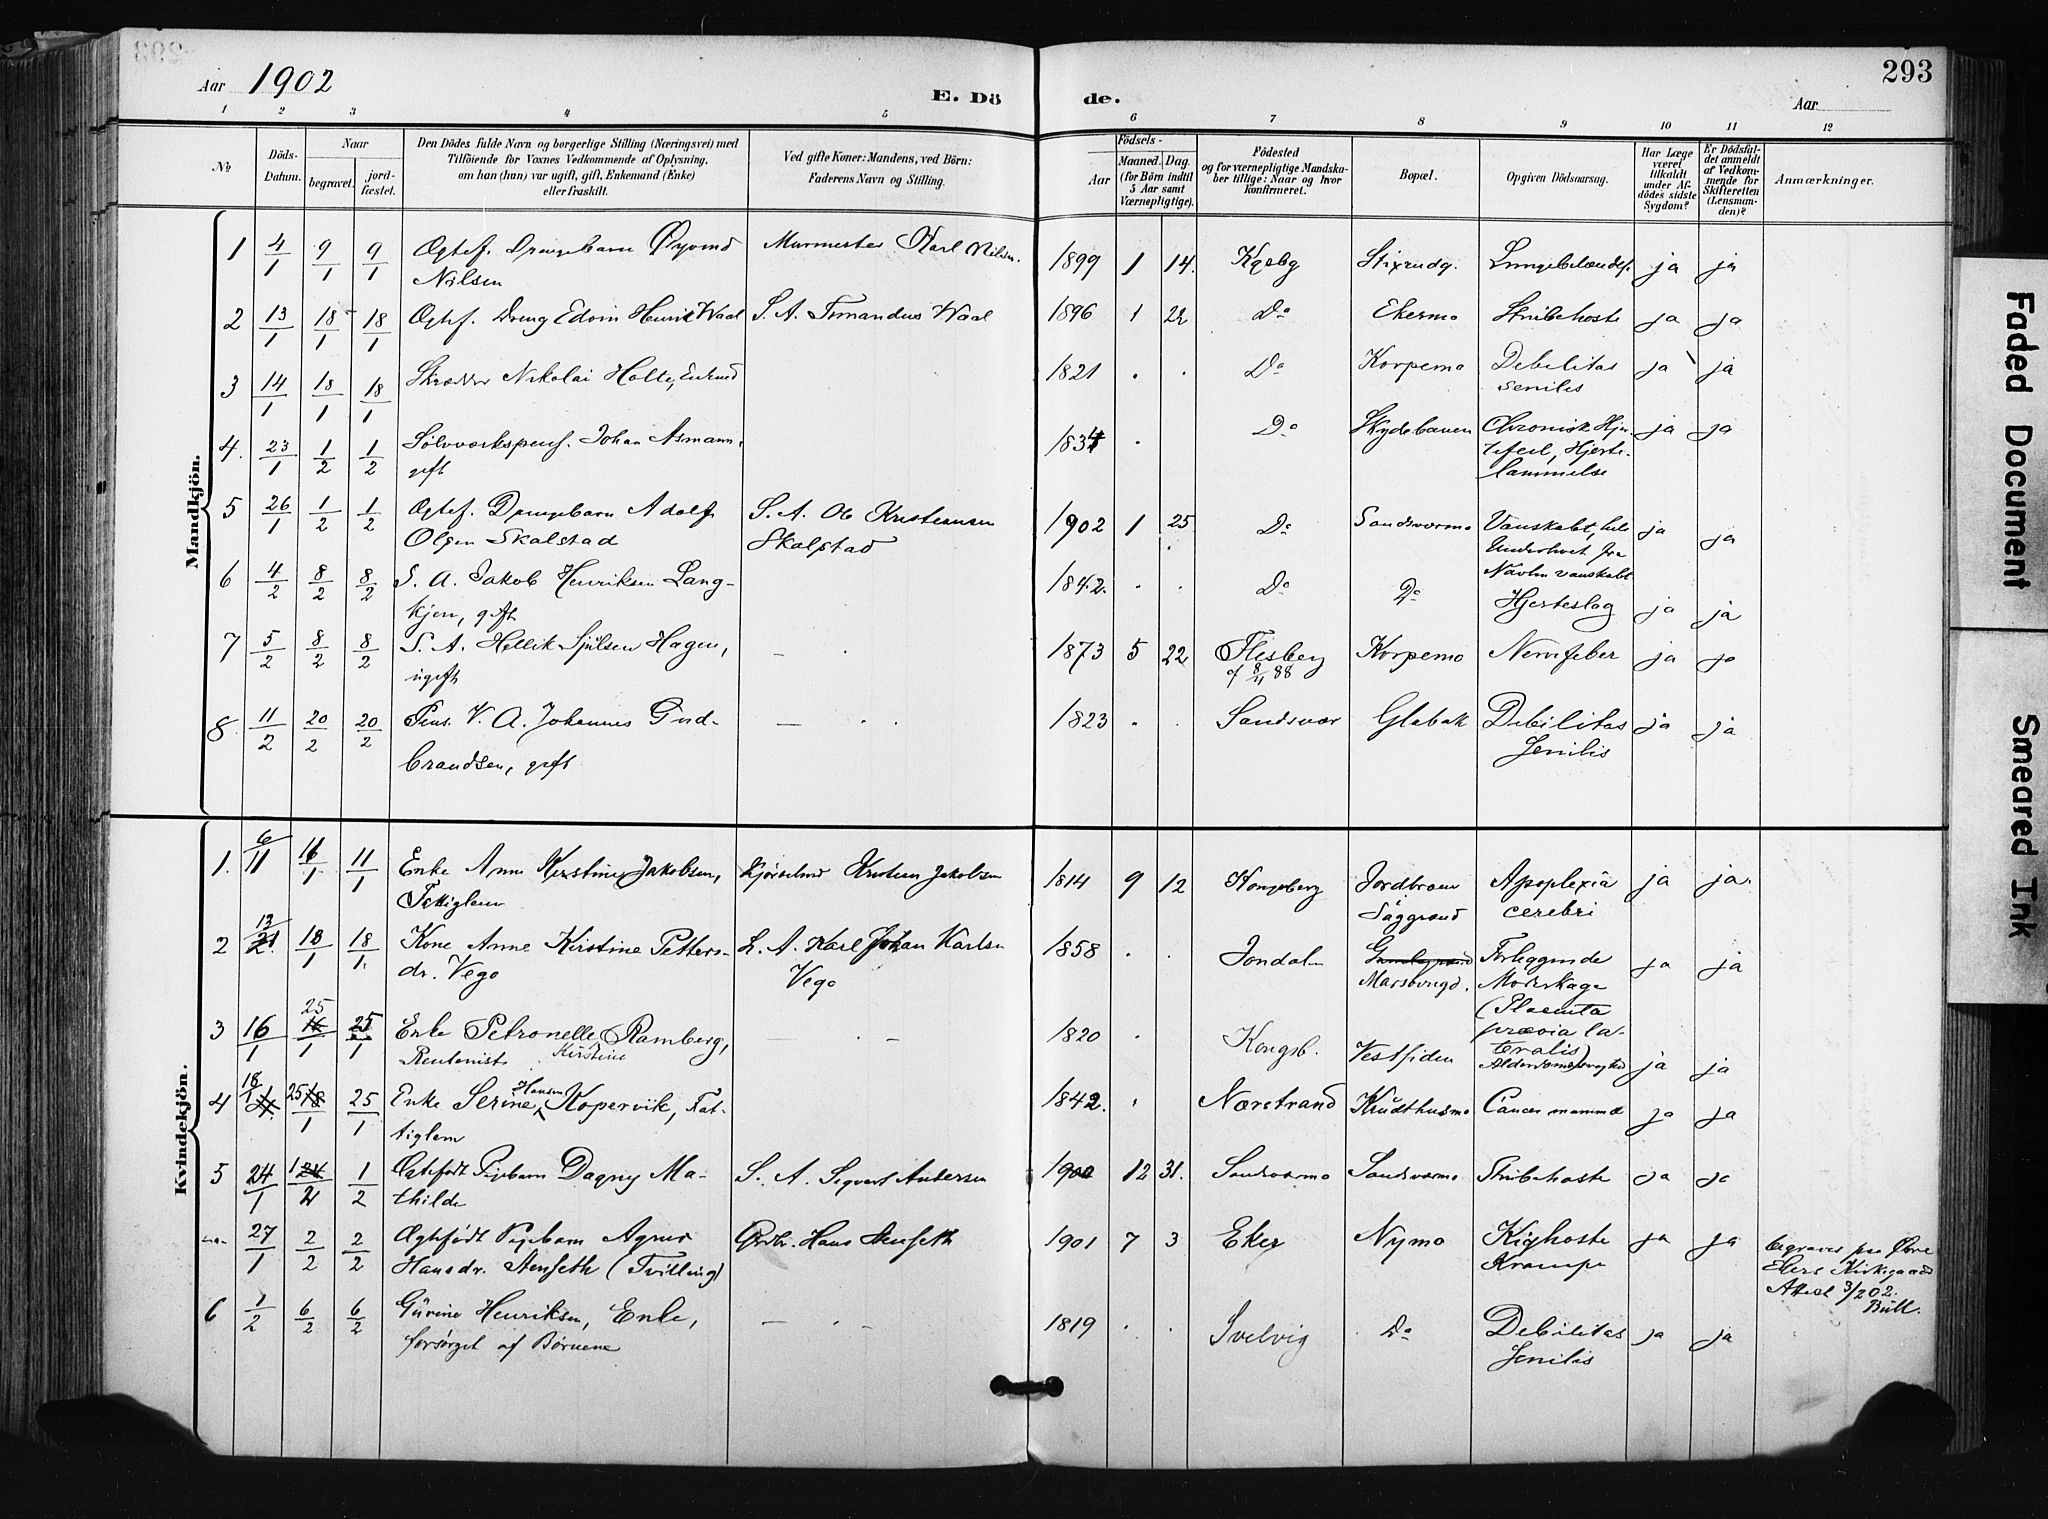 293
Aar 1902
E. Dö
de.
Aar
1 2 3 4 5 6 7 8 9 10 11 12
No
Döds-
Datum.
Naar
begravet.
jord-
fæstet.
Den Dödes fulde Navn og borgerlige Stilling (Næringsvei) med
Tilföiende for Voxnes Vedkommende af Oplysning,
om han (hun) var ugift, gift, Enkemand (Enke)
eller fraskilt.
Ved gifte Koner: Mandens, ved Börn:
Faderens Navn og Stilling.
Födsels-
Aar
Maaned. Dag.
(for Börn indtil
5 Aar samt
Værnepligtige).
Födested
og for værnepligtige Mandska-
ber tillige: Naar og hvor
konfirmeret.
Bopæl.
Opgiven Dödsaarsag.
Har Læge
været
tilkaldt
under Af-
dödes sidste
Sygdom?
Er Dödsfal-
det anmeldt
af Vedkom-
mende for
Skifteretten
(Lensman-
den)?
Anmærkninger.
Mandkjön.
1 4/1 9/1 9/1 Ægtef. Drengebarn Øyvind Murmester Karl Nilsen. 1899 1 14. Kgsbg Stixrudg. Lungebetændelse ja ja
Nilsen
2 13/1 18/1 18/1 Ægtef. Dreng Edvin Henrik Waal S. A. Fernandus Waal 1896 1 22 Do Ekermo Strubehoste ja ja
3 14/1 18/1 18/1 Skrædder Nikolai Holte, Enkmd 1821 Do Korpemo Debilitas ja ja
senilis
4. 23/1 1/2 1/2 Sølvværkspens. Johan Asmann, 1834 Do Skydebanen Chronisk Hjer- ja ja
gift
tefeil, Hjerte-
lammelse
5 26/1 1/2 1/2 Ægtef. Drengebarn Adolf S. A. Ole Kristiansen 1902 1 25 Do Sandsværmo Vanskabt, hele ja ja
Olsen Skalstad Skalstad
Underlivet fra
Navlen vanskabt
6 4/2 8/2 8/2 S. A. Jakob Henriksen Lang- 1842. Do Do Hjerteslag ja ja
kjen, gift
7 5/2 8/2 8/2 S. A. Hellik Sjulsen Hagen, 1873 5 22 Flesberg Korpemo Nervefeber ja ja
ugift
cf 8/11 88
8. 11/2 20/2 20/2 Pens. V. A. Johannes Gud- 1823 Sandsvær Glabak Debilitas ja ja
brandsen, gift
Senilis
Kvindekjön.
1. 6/11 16/1 11/1 Enke Anne Kirstine Jakobsen, Kjørselmd Kristian Jakobsen 1814 9 12 Kongsberg Jordbroen Apoplexia ja ja.
Fattiglem
Saggrend cerebri
2 13/21 18/1 18/1. Kone Anne Kirstine Petters- S. A. Karl Johan Karlsen 1858 Jondalen Gamlegrend Forliggende ja ja
dr. Vego Vego
Marsovngd. Moderkage
(Placenta
prævia la-
teralis)
3 16/1 25 16/1 25/1 Enke Petronelle Ramberg, 1820 Kongsb. Vestsiden Alderdomssvaghed ja ja
Rentenist Kirstine
4 18/1 25 18/1 25/1 Enke Serine Hansen Kopervik, Fat- 1842. Nærstrand Krudthusmo Cancer mammæ ja ja
tiglem
5 24/1 1 24/2 1/2 Ægtefødt Pigebarn Dagny Ma- S. A. Sigvart Andersen 1900 12 31. Sandsværmo Sandsværmo Strubehoste ja ja
thilde
27/1 2/2 2/2 Ægtefødt Pigebarn Agnes Grdbr. Hans Stenseth 1901 7 3 Eker Nymo Kighoste ja ja
Hansdr. Stenseth (Tvilling) Krampe
begraves paa Øvre
Ekers Kirkegaard
Attest 3/2 02.
Bull.
6 1/2 6/2 6/2 Gurine Henriksen, Enke, 1819 Svelvig Do Debilitas ja ja
forsørget af Børnene
Senilis
Faded Document
Smeared Ink